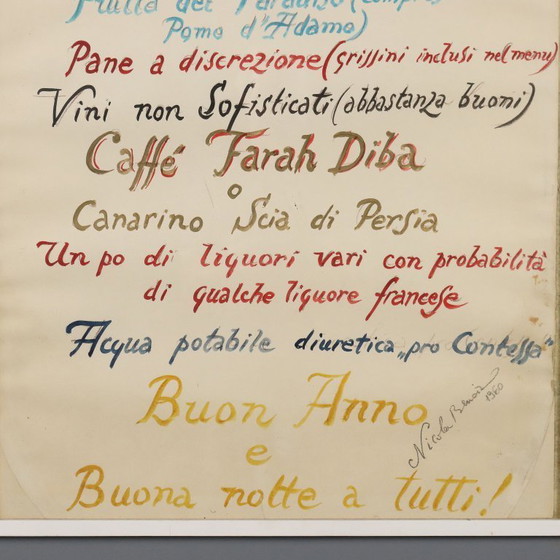 Frutta del Paradiso (compreso
Pomo d'Adamo)
Pane a discrezione (grissini inclusi nel menu)
Vini non Sofisticati (abbastanza buoni)
Caffé Farah Diba
o
Canarino Scià di Persia
Un po di liquori vari con probabilità
di qualche liquore francese
Acqua potabile diuretica „pro Contessa"
Buon Anno
e
Nicola Benois
1960
Buona notte a tutti!